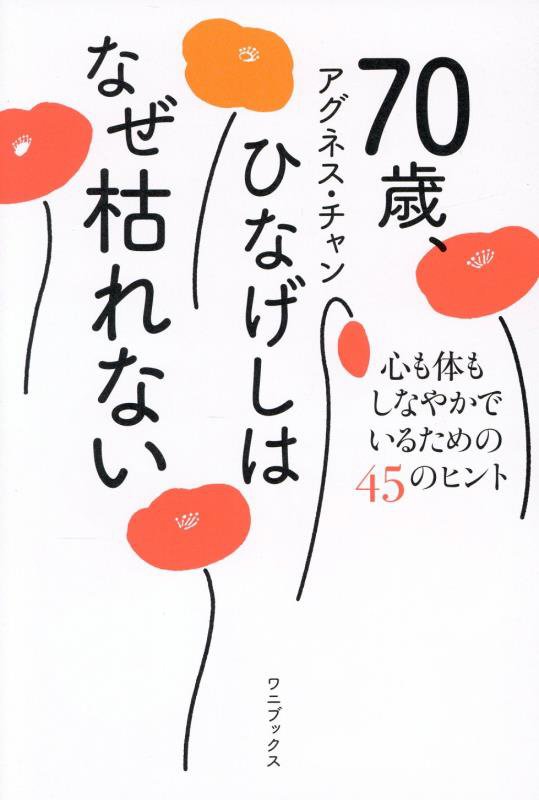 70歳、
ひなげしは
なぜ枯れない
アグネス・チャン
心も体も
しなやかで
いるための
45のヒント
ワニブックス